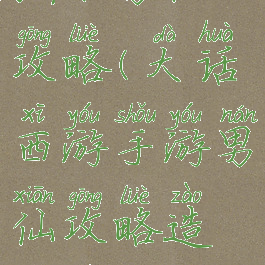 gōng lüè dà huà
攻略(大话
xī yóu shǒu yóu nán
西游手游男
xiān gōng lüè zào
仙攻略造